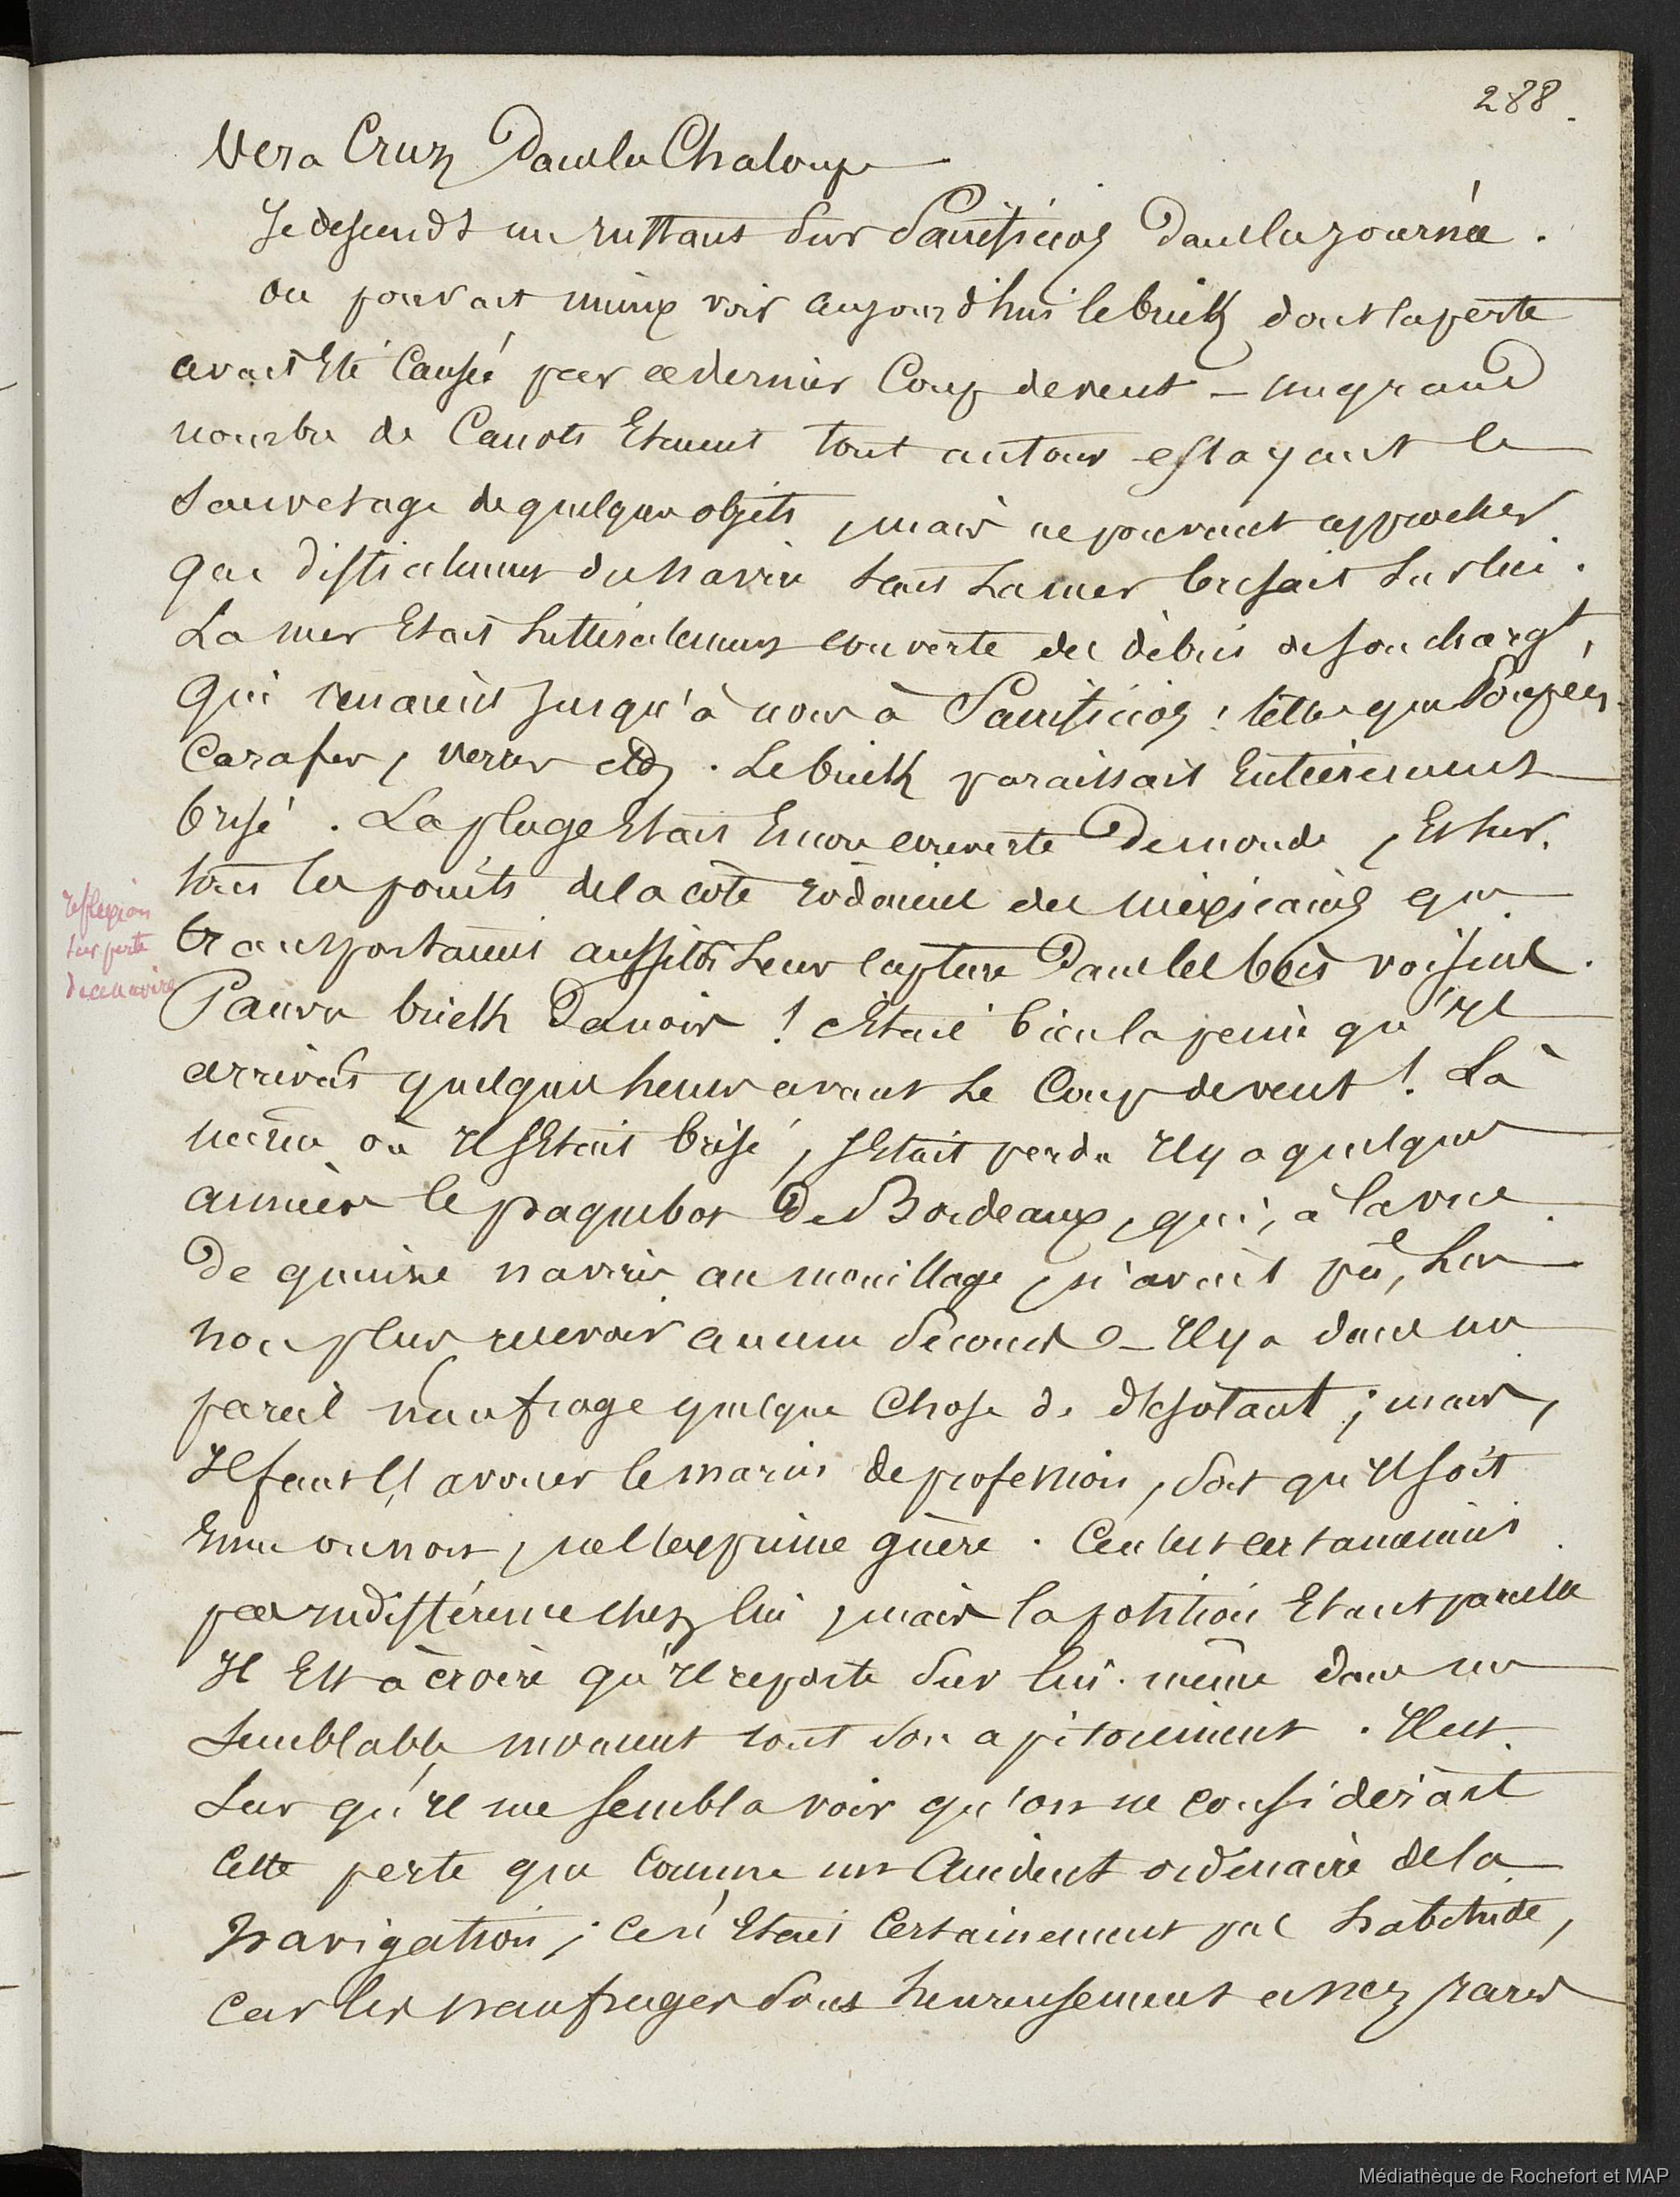 288.
Vera Cruz Dans la Chaloupe
Je descendt un instant sur Sacrificios dans la journée.
on pouvait mieux voir aujourd'hui le brick dont la perte
avait Eté Causée par ce dernier Coup de vent _ un grand
nombre de Canots Etaient tout autour essayant le
Sauvetage de quelques objets, mais ne pouvant approcher
que difficilement du navire tant La mer brisait sur lui.
La mer Etait Littéralement couverte des débris de son chargt,
Qui venaient Jusqu'à nous à Sacrificios; telles que Poupées,
Carafes, verres etc. Le brick paraissait Entièrement
brisé. La plage Etait Encore couverte De monde, Et sur
tous les points de la côte rodaient des mexicains qui
transportaient aussitôt Leur capture Dans les bois voisins.
réflexion
sur perte
d'un navire
Pauvre brick Danois ! c'Etait bien la peine qu'Il
arrivât quelques heures avant Le Coup de vent ! Là
même où Il s'Etait brisé, s'Etait perdu Il y a quelques
années le paquebot De Bordeaux, qui, à la vue
De quinze navires au mouillage, n'avait pû, lui
non plus recevoir aucun Secours _ Il y a dans un
pareil naufrage quelque Chose de désolant ; mais,
Il faut L'avouer le marin de profession, soit qu'Il soit
Emu ou non, ne l'exprime guère. Ce n'est certainement
pas indifférence chez lui, mais la position Etant pareille
Il Est à croire qu'Il reporte sur lui-même dans un
Semblable moment tout son apitoiement. Il est
Sur qu'Il me sembla voir qu'on ne considérait
Cette perte que Comme un Accident ordinaire de la
Navigation; Ce n'Etait Certainement pas habitude,
Car les naufrages sont heureusement assez rares
Médiathèque de Rochefort et MAP